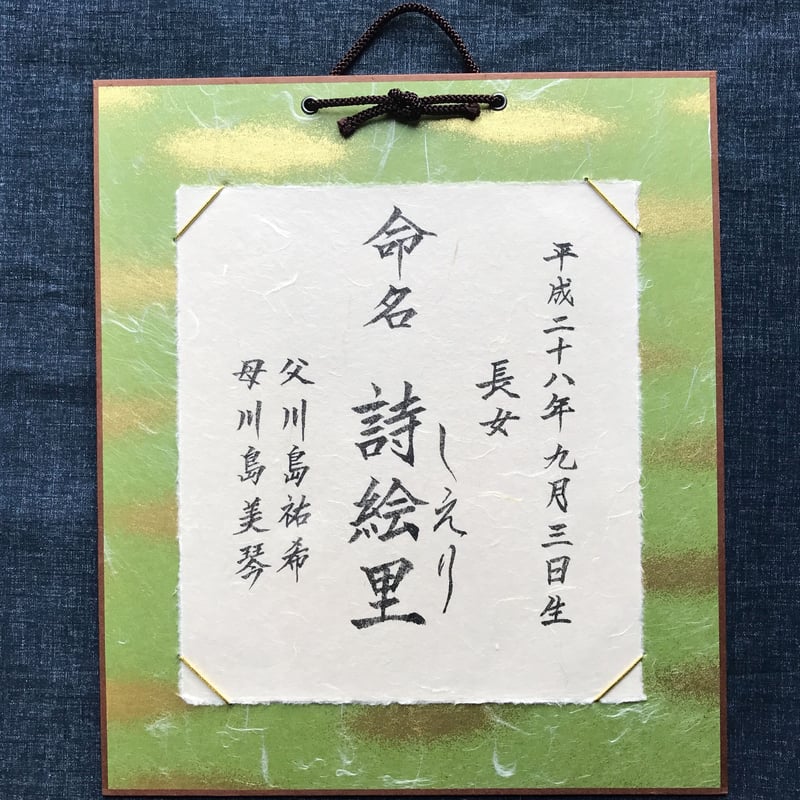 平成二十八年九月三日生
長女
しえり
命名 詩絵里
父川島祐希
母川島美琴